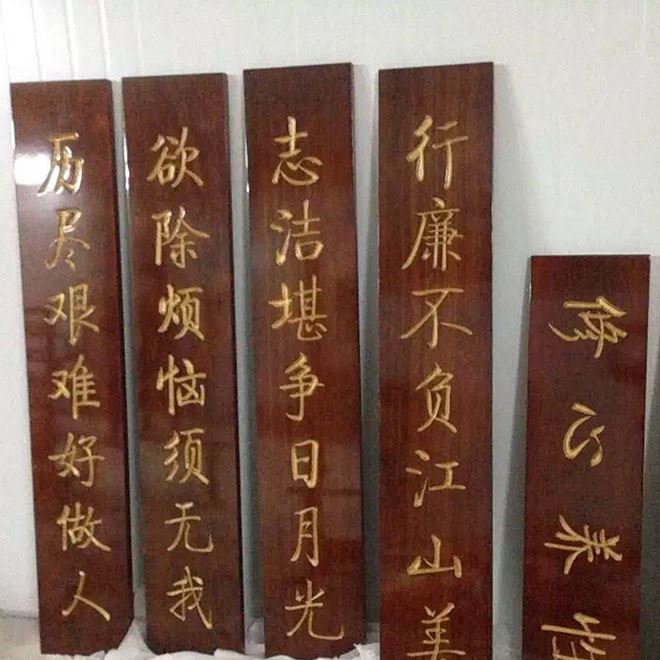 修心养性
行廉不负江山美
志洁堪争日月光
欲除烦恼须无我
历尽艰难好做人